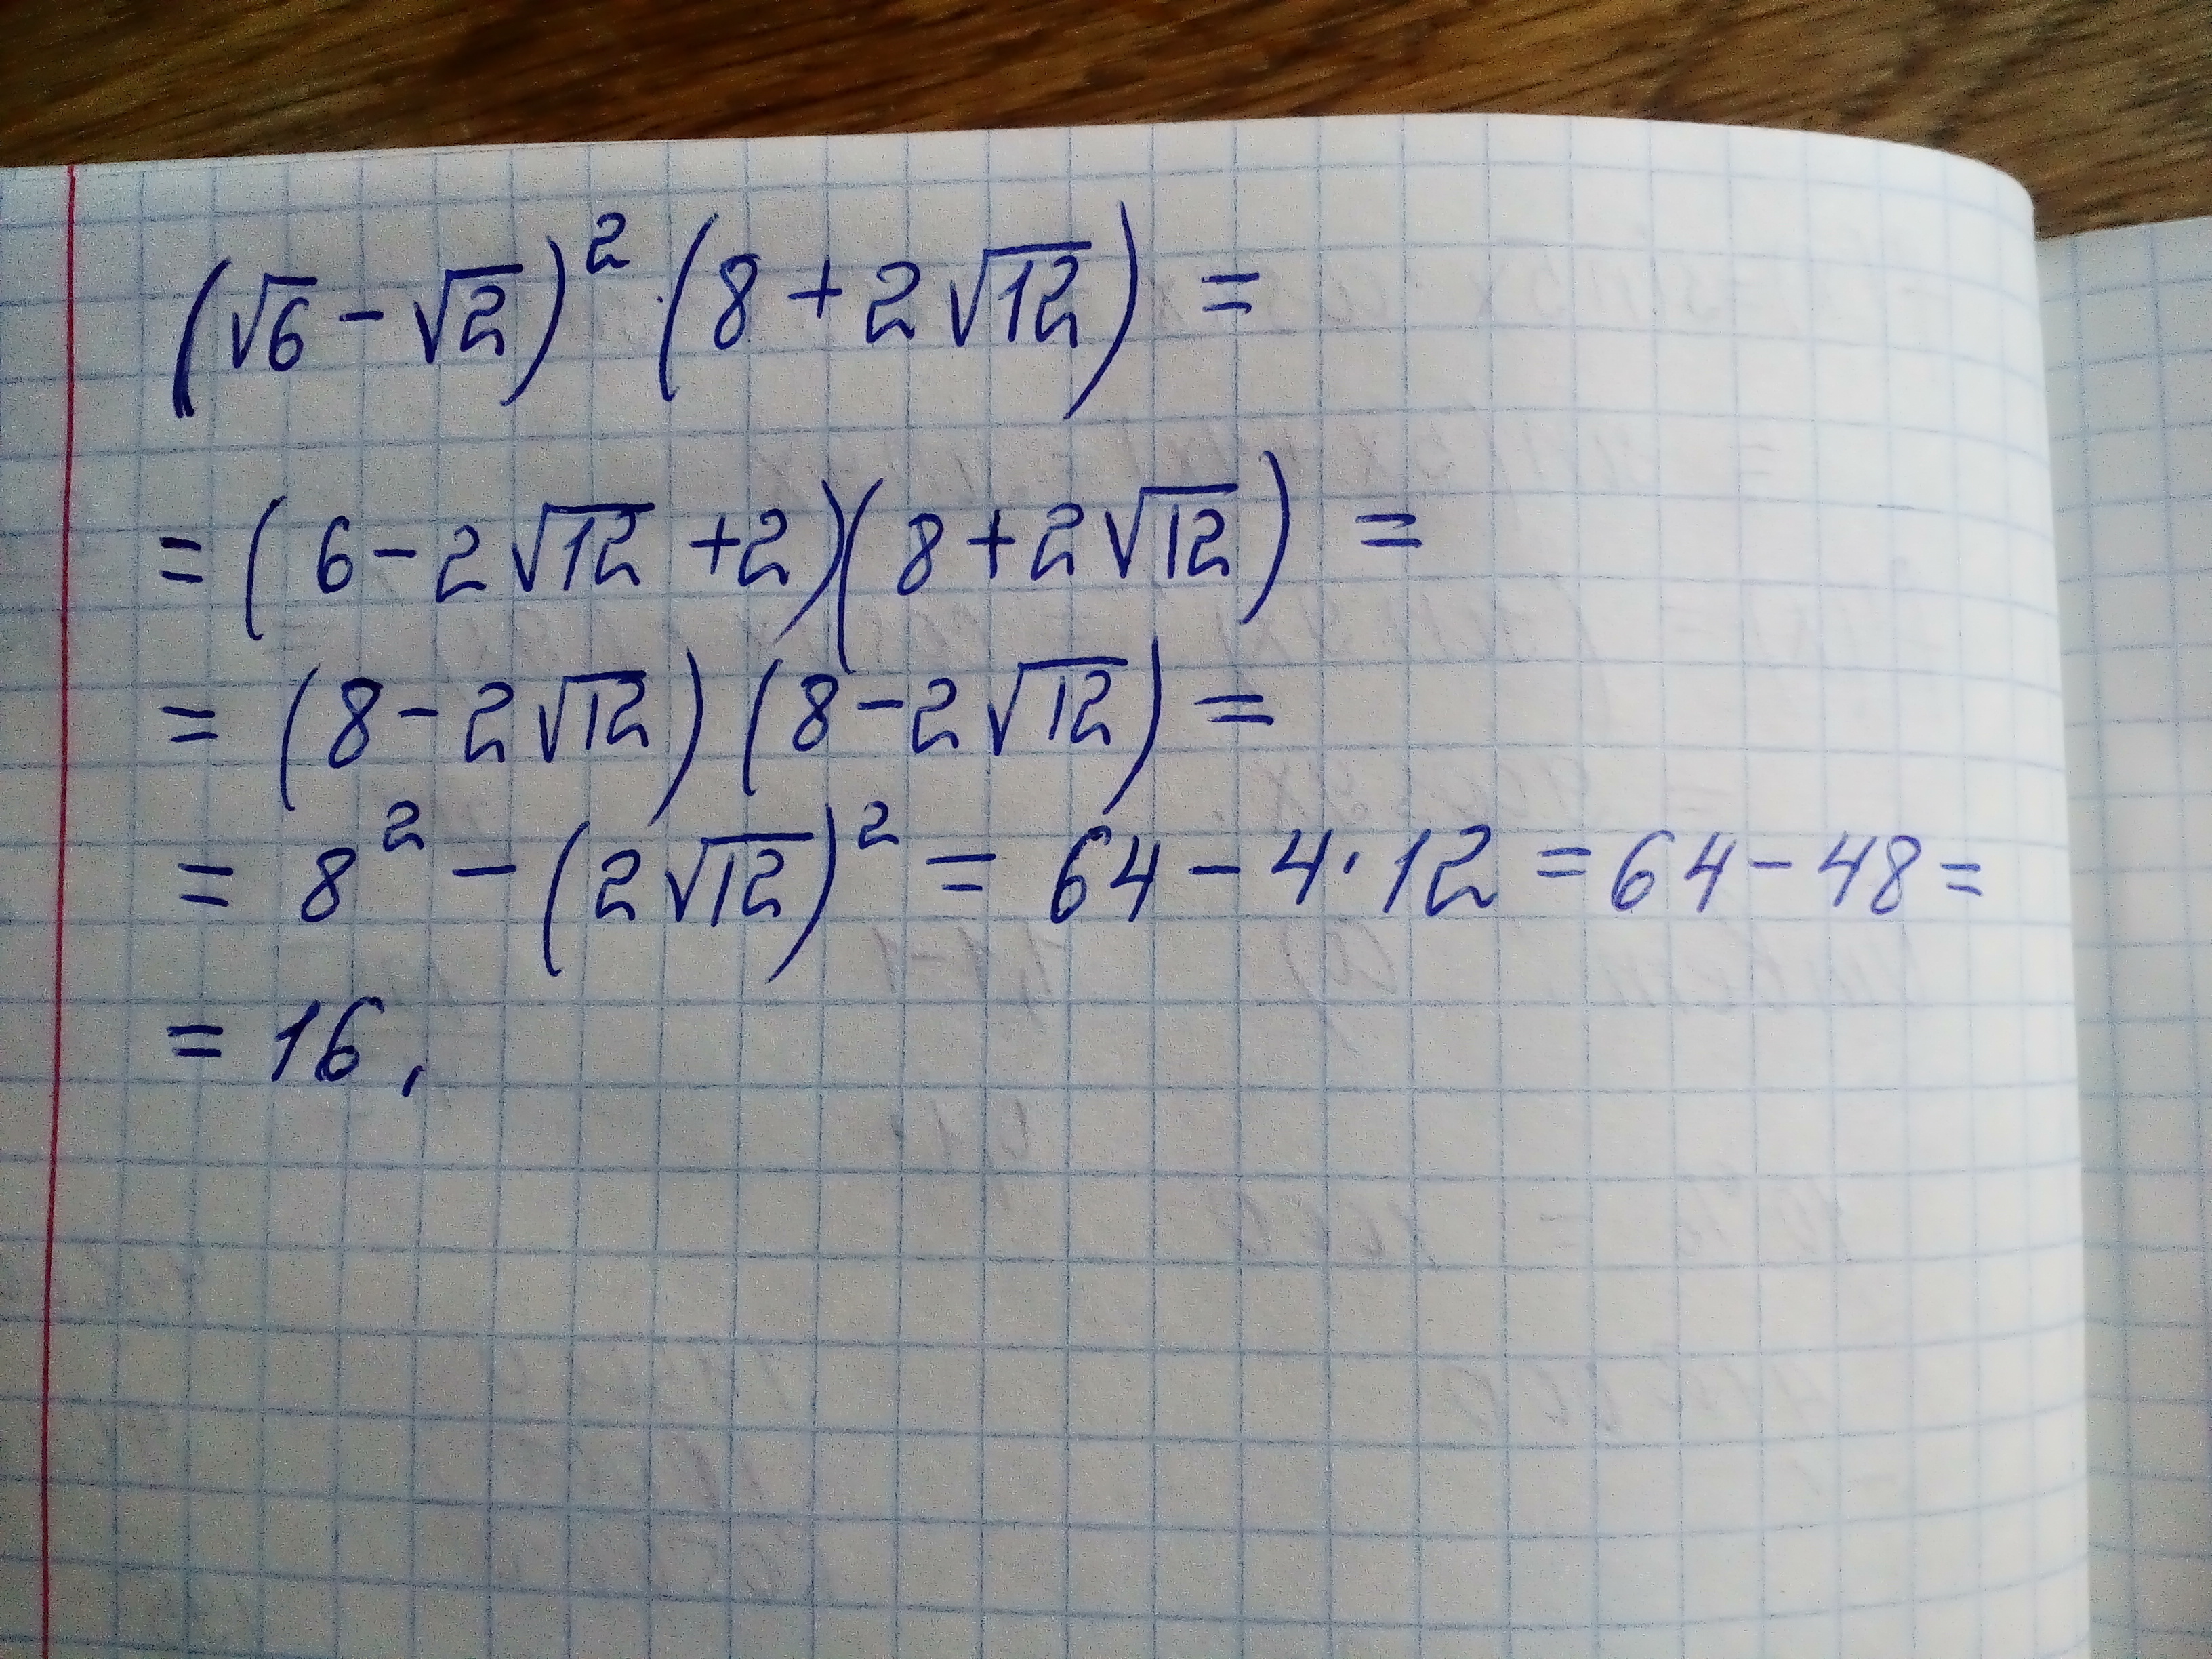 (√6 - √2)² · (8 + 2√12) =
= (6 - 2√12 + 2)(8 + 2√12) =
= (8 - 2√12) (8 - 2√12) =
= 8² - (2√12)² = 64 - 4 · 12 = 64 - 48 =
= 16,